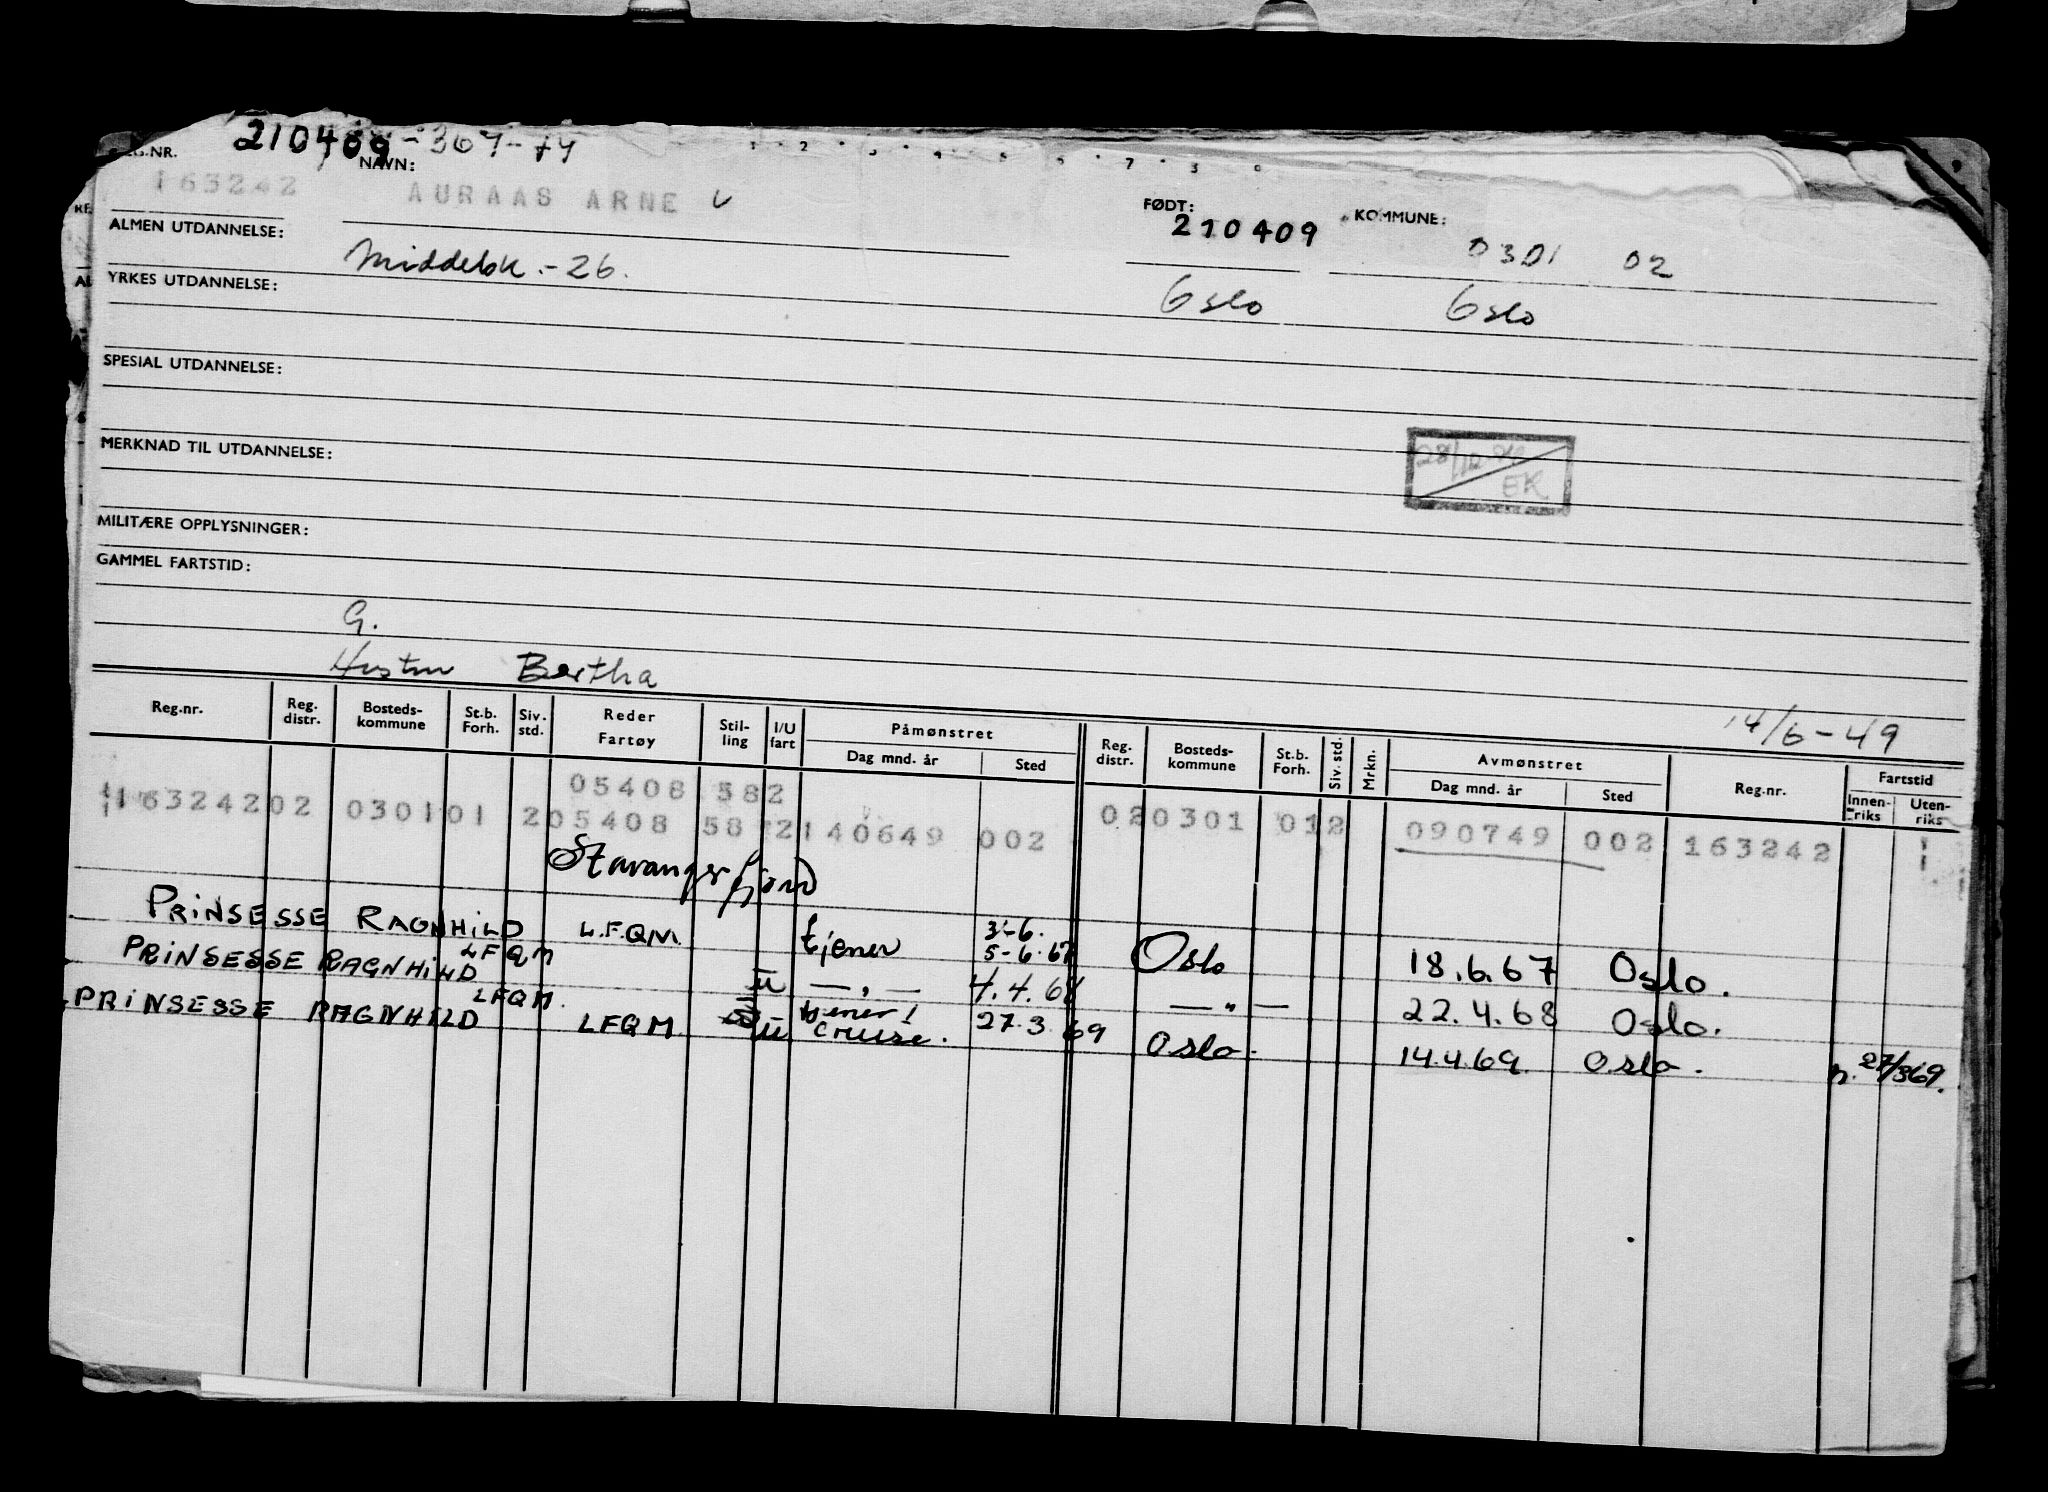 210409-367-74
REG.NR. NAVN: 1 · 2 · 3 · 4 · 5 6 · 7 · 8 9
163242 AURAAS ARNE FØDT: KOMMUNE:
210409 0301 02
ALMEN UTDANNELSE: Middelsk.-26.
Oslo Oslo
YRKES UTDANNELSE:
SPESIAL UTDANNELSE:
MERKNAD TIL UTDANNELSE:
EK
MILITÆRE OPPLYSNINGER:
GAMMEL FARTSTID:
G.
Hustru Bertha
14/6-49
Reg.nr. Reg. distr. Bosteds-kommune St.b. Forh. Siv. std. Reder Fartøy Stil-ling I/U fart Påmønstret Dag mnd. år Sted Reg. distr. Bosteds-kommune St.b. Forh. Siv. std. Mrkn. Avmønstret Dag mnd. år Sted Reg.nr. Fartstid Innen-riks Uten-riks
05408 582
163242 02 0301 01 2 05408 58 2 2 140649 002 02 0301 01 2 090749 002 163242
Stavangerfjord
PRINSESSE RAGNHILD L.F.Q.M. tjener 3-6. 5-6.67 Oslo 18.6.67 Oslo.
PRINSESSE RAGNHILD LFQM U — „ — 4.4.68 — „ — 22.4.68 Oslo.
PRINSESSE RAGNHILD LFQM. LFQM U tjener/ cruise. 27.3 69 Oslo. 14.4.69. Oslo. n. 27/369.